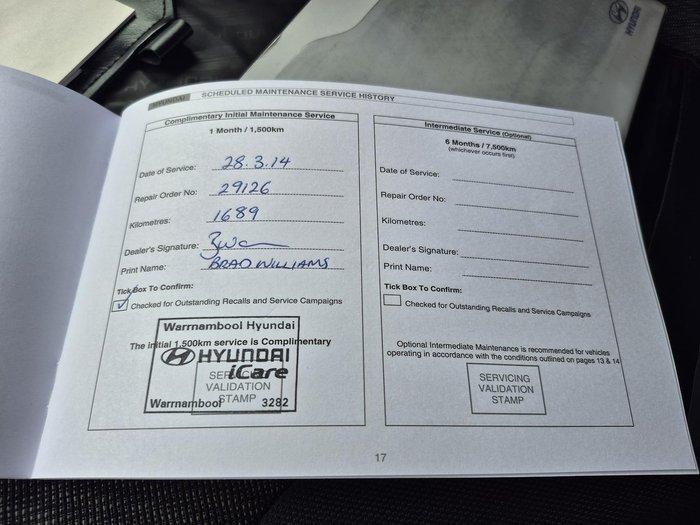 HYUNDAI
HYUNDAI SCHEDULED MAINTENANCE SERVICE HISTORY
Complimentary Initial Maintenance Service
1 Month / 1,500km
Date of Service: 28.3.14
Repair Order No: 29126
Kilometres: 1689
Dealer's Signature:
Print Name: BRAD WILLIAMS
Tick Box To Confirm:
Checked for Outstanding Recalls and Service Campaigns
The initial 1,500km service is Complimentary
Warrnambool Hyundai
HYUNDAI
iCare
Warrnambool 3282
SERVICING
VALIDATION
STAMP
Intermediate Service (Optional)
6 Months / 7,500km
(whichever occurs first)
Date of Service:
Repair Order No:
Kilometres:
Dealer's Signature:
Print Name:
Tick Box To Confirm:
Checked for Outstanding Recalls and Service Campaigns
Optional Intermediate Maintenance is recommended for vehicles
operating in accordance with the conditions outlined on pages 13 & 14
SERVICING
VALIDATION
STAMP
17